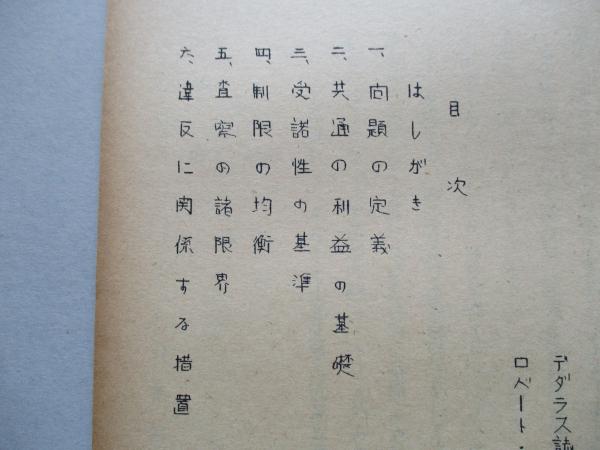 目次
はしがき
一、問題の定義
二、共通の利益の基礎
三、受諾性の基準
四、制限の均衡
五、査察の諸限界
六、違反に関係する措置
デダラス誌
ロバート・